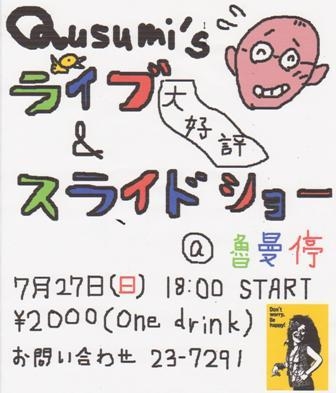 Qusumi's
ライブ
大好評
&
スライドショー
@ 魯曼停
7月27日(日) 18:00 START
¥2000(One drink)
お問い合わせ 23-7291
Don't
worry,
Be
happy!